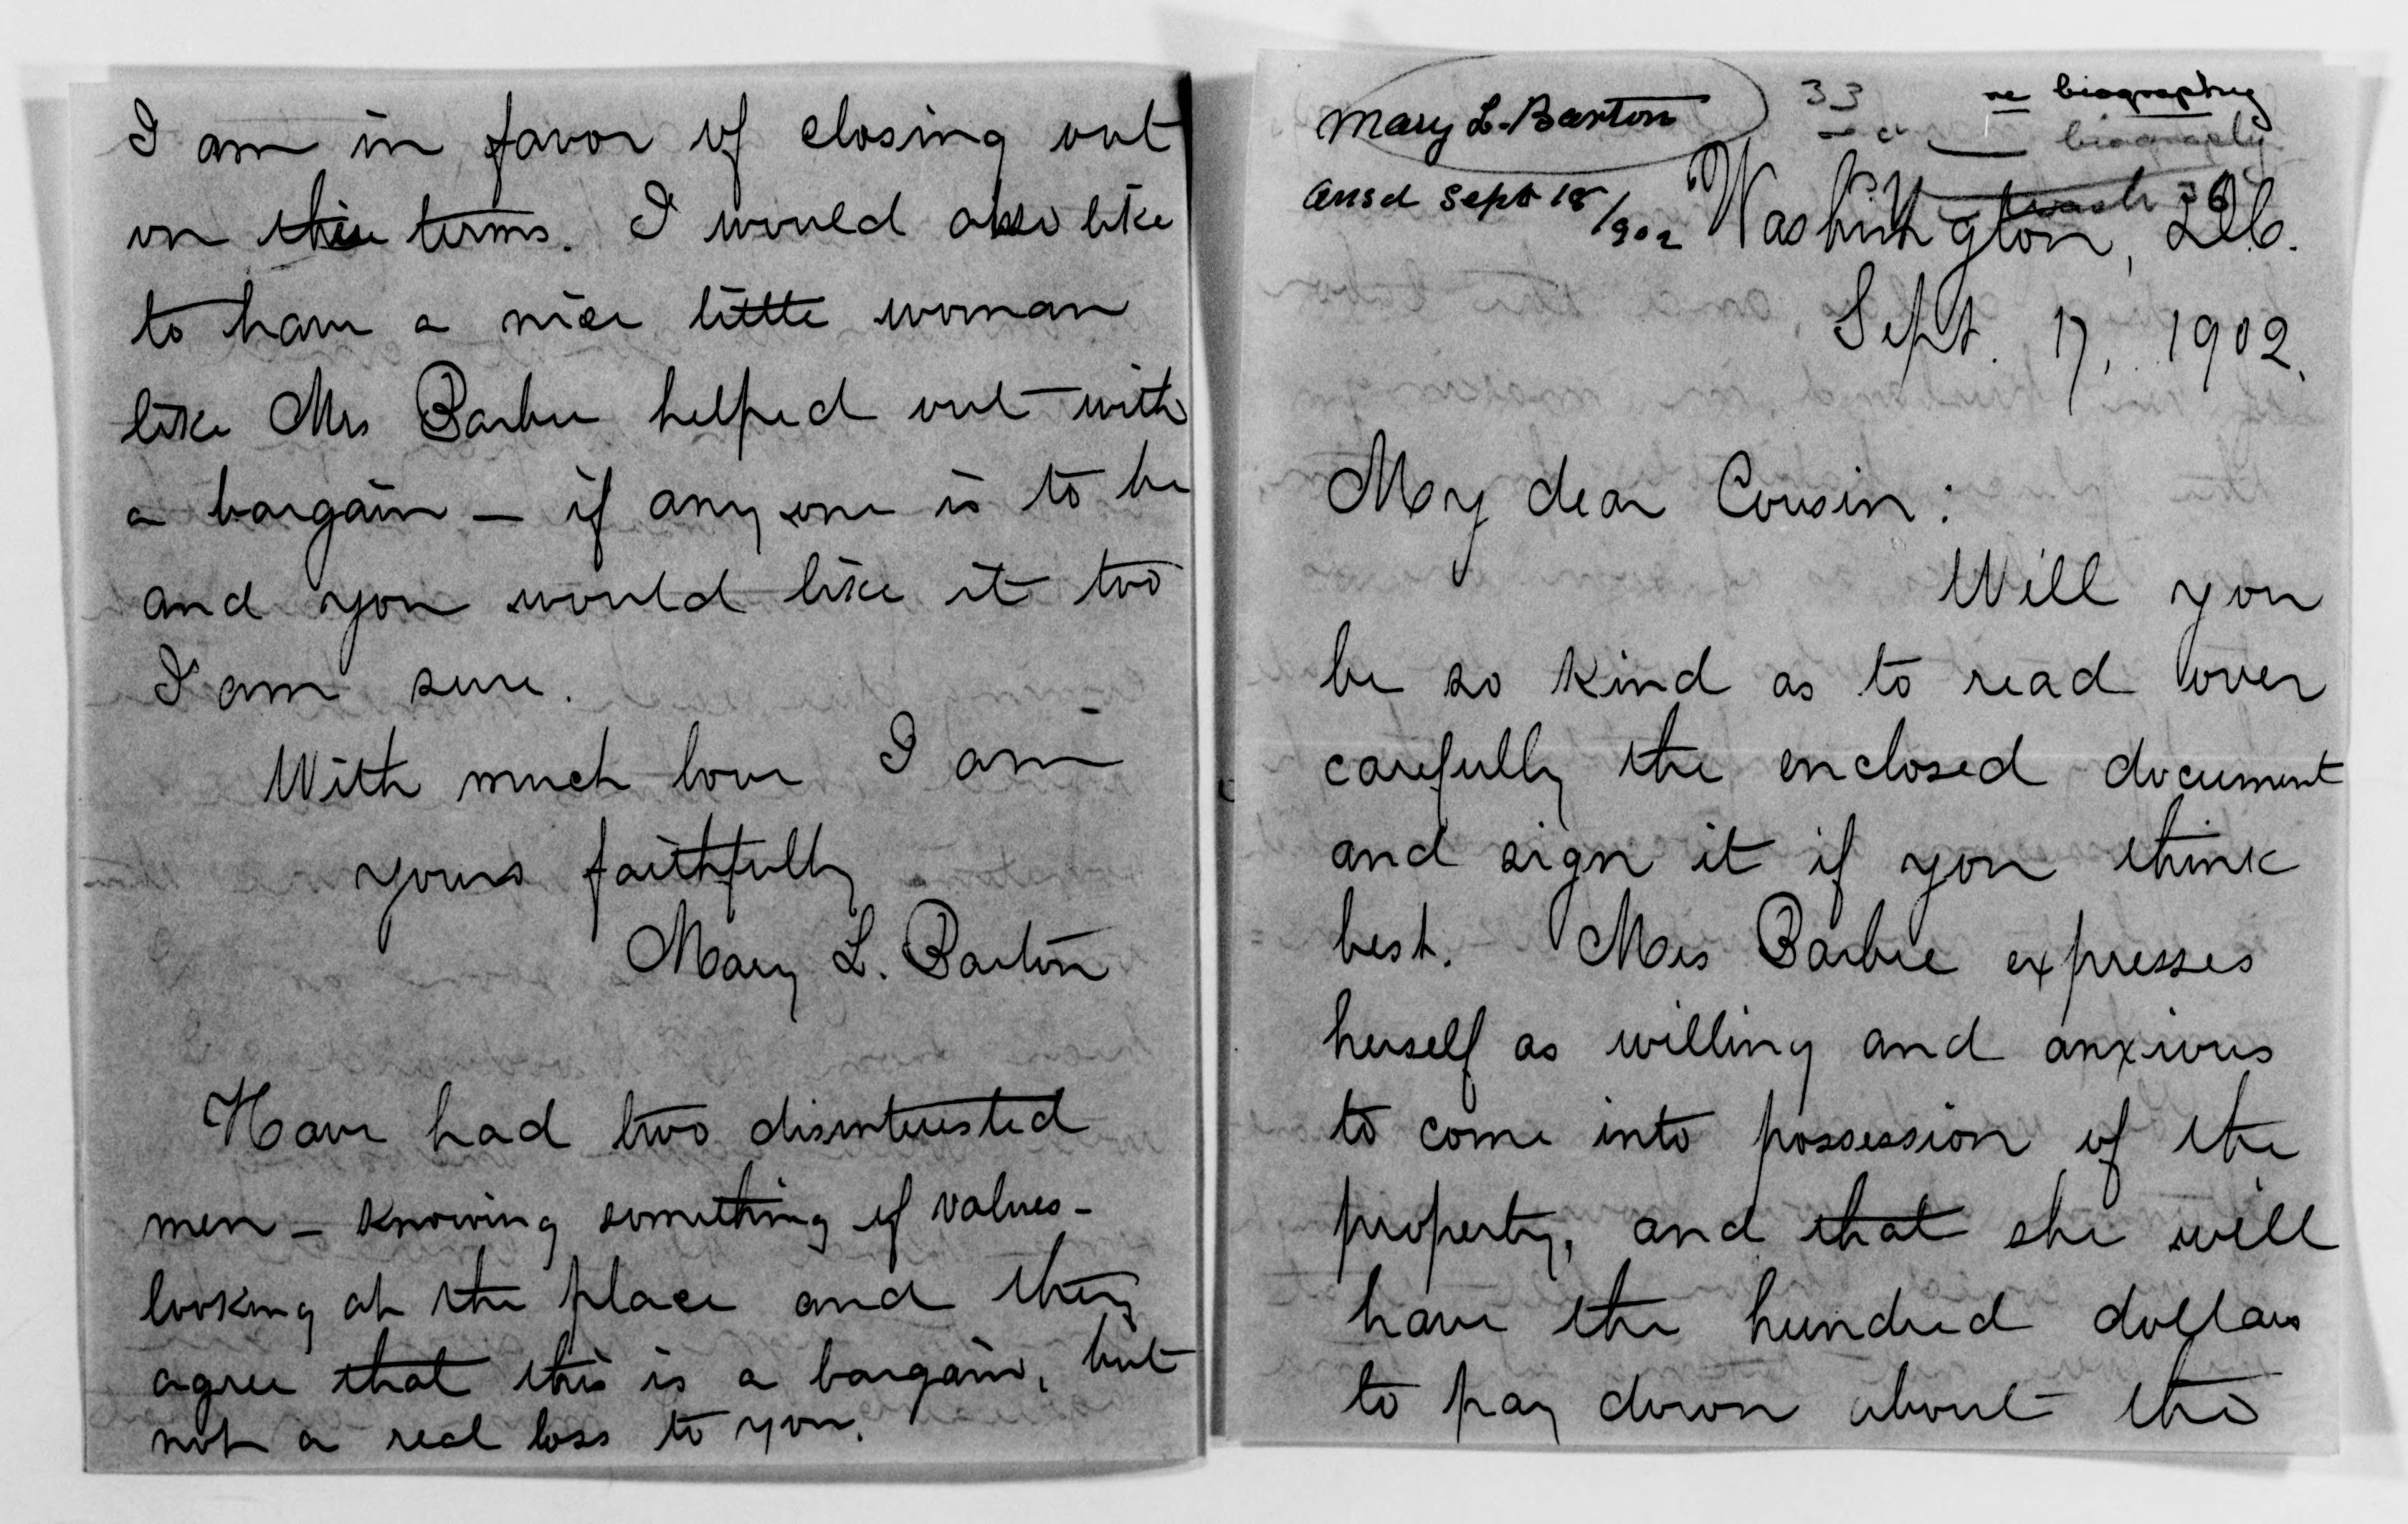 I am in favor of closing out
on this terms. I would also like
to have a nice little woman
like Mrs Barbee helped out with
a bargain — if any one is to be
and you would like it too
I am sure.
With much love I am
yours faithfully
Mary L. Barton
Have had two disinterested
men — knowing something of values —
looking at the place and they
agree that this is a bargain, but
not a real loss to you.
Mary L. Barton
33
re biography
biography
Ansd Sept 18/902
Washington, D.C.
Sept. 17, 1902.
My dear Cousin:
Will you
be so kind as to read over
carefully the enclosed document
and sign it if you think
best. Mrs Barbee expresses
herself as willing and anxious
to come into possession of the
property, and that she will
have the hundred dollars
to pay down about the